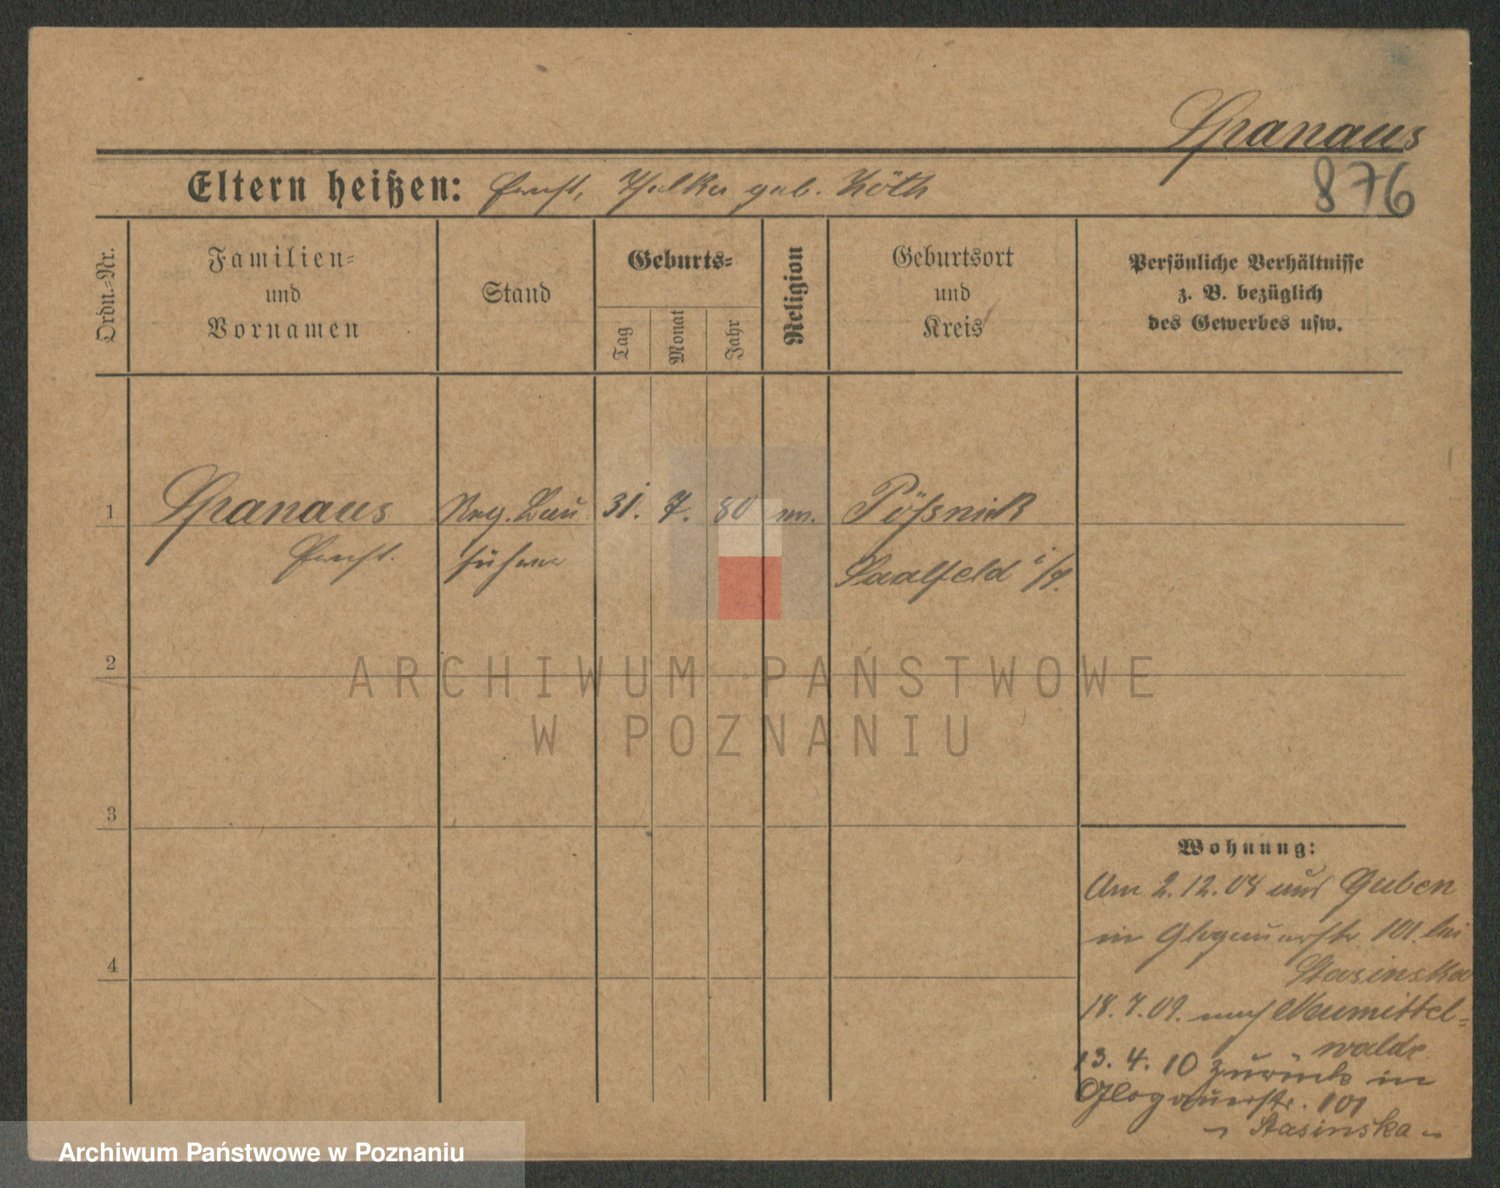 Spanaus
Eltern heißen: Ernst, geb. Köth
876
Ordn.=Nr.
Familien=
und
Vornamen
Stand
Geburts=
Tag
Monat
Jahr
Religion
Geburtsort
und
Kreis
Persönliche Verhältnisse
z. B. bezüglich
des Gewerbes usw.
1
Spanaus
Ernst.
Reg. Bau
führer
31. 7. 80
Pößnick
Saalfeld
2
ARCHIWUM PAŃSTWOWE
W POZNANIU
3
4
Wohnung:
Am 2.12.08 aus Guben
in Glogauerstr. 101 bei
Stasinska
18.7.09. nach Neumittel=
walde
13.4.10 zurück in
Glogauerstr. 101
Stasinska
Archiwum Państwowe w Poznaniu